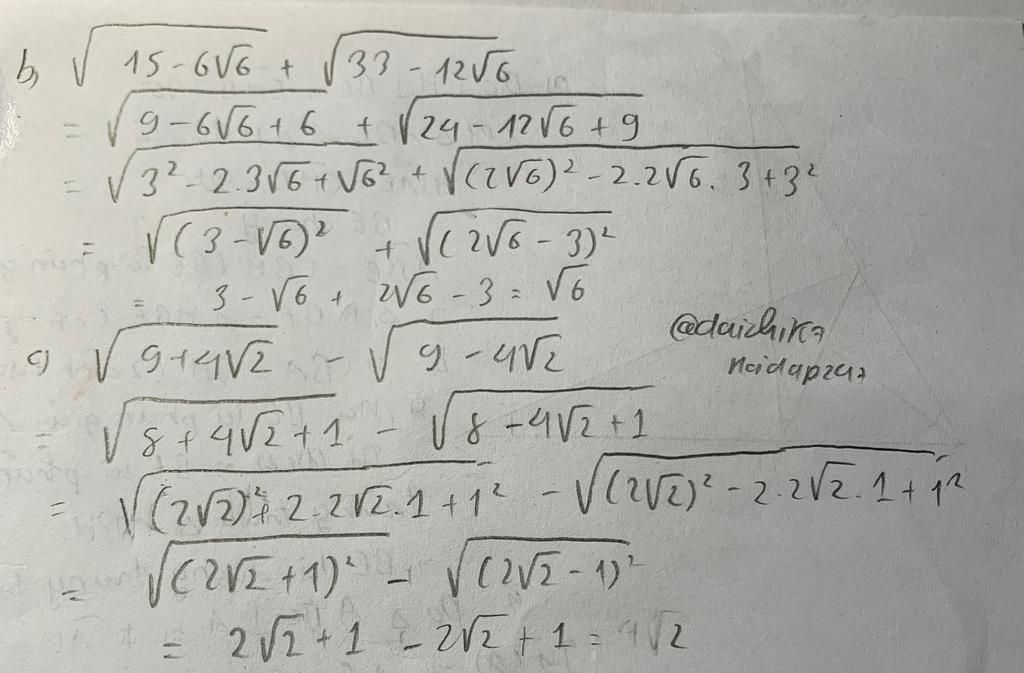 b) √15 - 6√6 + √33 - 12√6
= √9 - 6√6 + 6 + √24 - 12√6 + 9
= √3² - 2.3√6 + √6² + √(2√6)² - 2.2√6. 3 + 3²
= √(3 - √6)² + √(2√6 - 3)²
= 3 - √6 + 2√6 - 3 = √6
c) √9 + 4√2 - √9 - 4√2
= √8 + 4√2 + 1 - √8 - 4√2 + 1
= √(2√2)² + 2.2√2.1 + 1² - √(2√2)² - 2.2√2.1 + 1²
= √(2√2 + 1)² - √(2√2 - 1)²
= 2√2 + 1 - 2√2 + 1 = 4√2